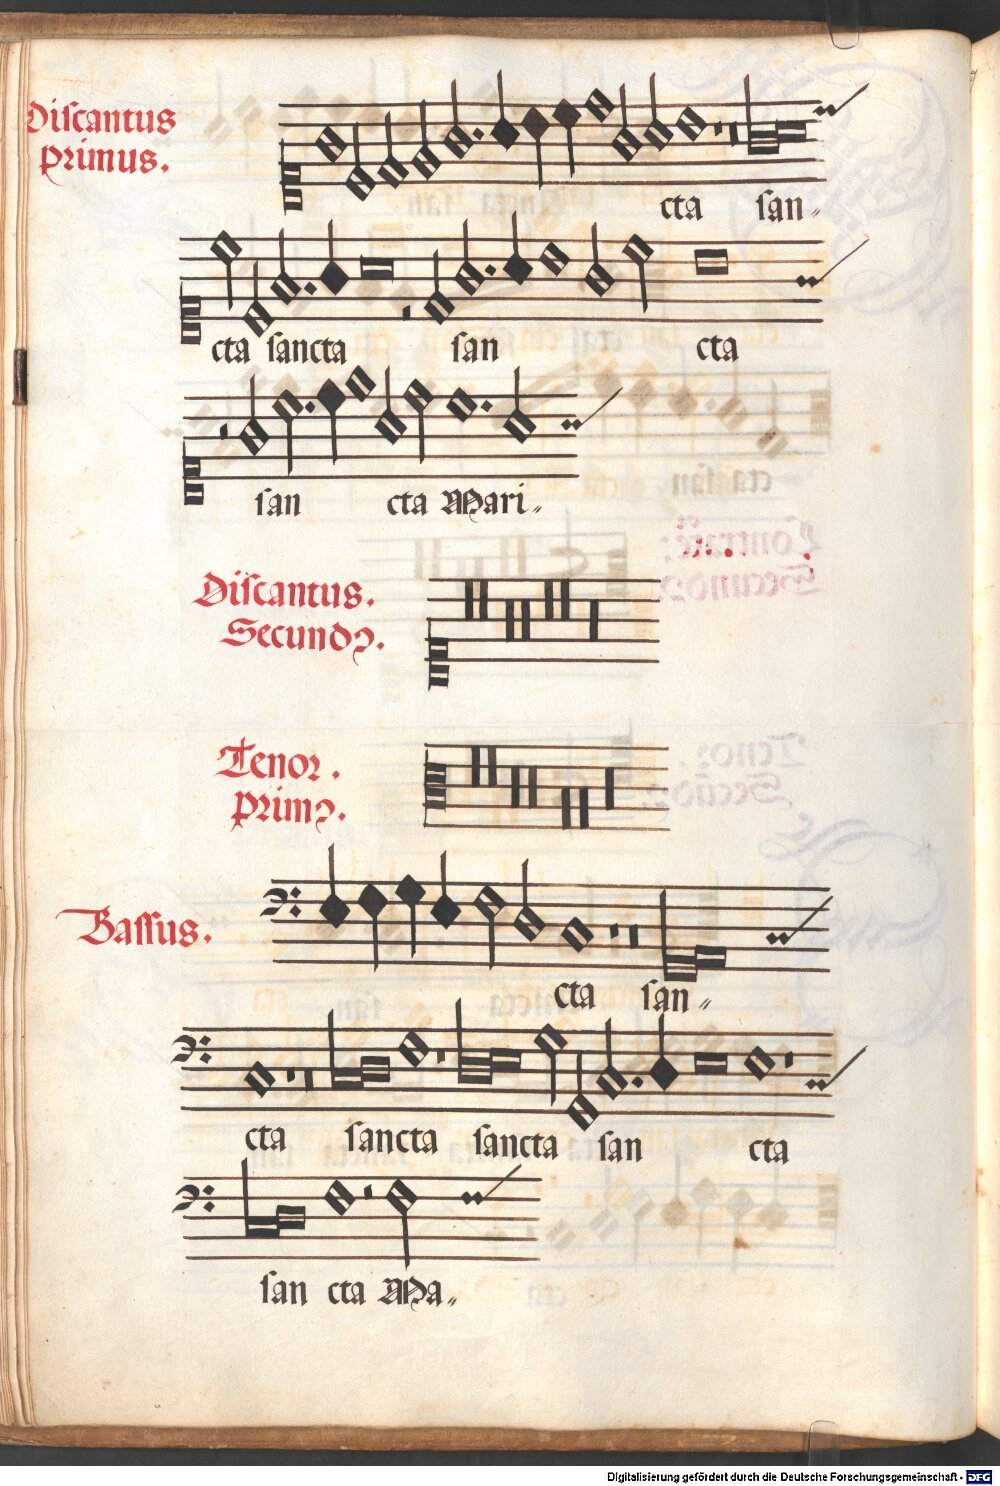 Discantus
Primus.
cta san〃
cta sancta san cta
san cta Mari〃
Discantus.
Secundꝰ.
Tenor.
Primꝰ.
Bassus.
cta san〃
cta sancta sancta san cta
san cta Ma〃
Digitalisierung gefördert durch die Deutsche Forschungsgemeinschaft - DFG